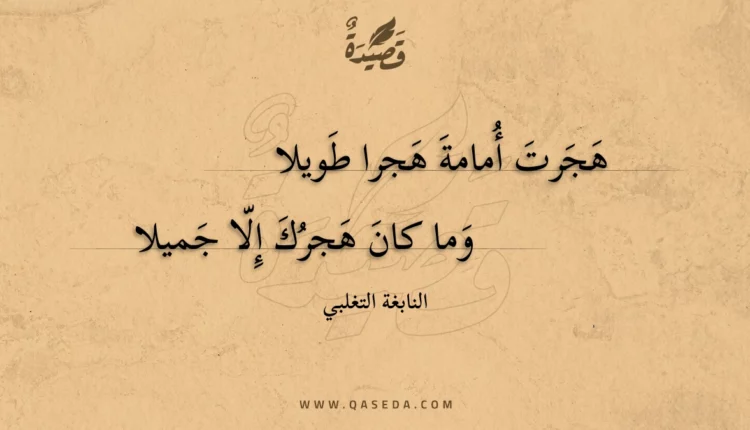 قَصِيْدَةٌ
هَجَرتَ أُمامةَ هَجرا طَويلا
وَما كانَ هَجرُكَ إِلّا جَميلا
النابغة التغلبي
WWW.QASEDA.COM